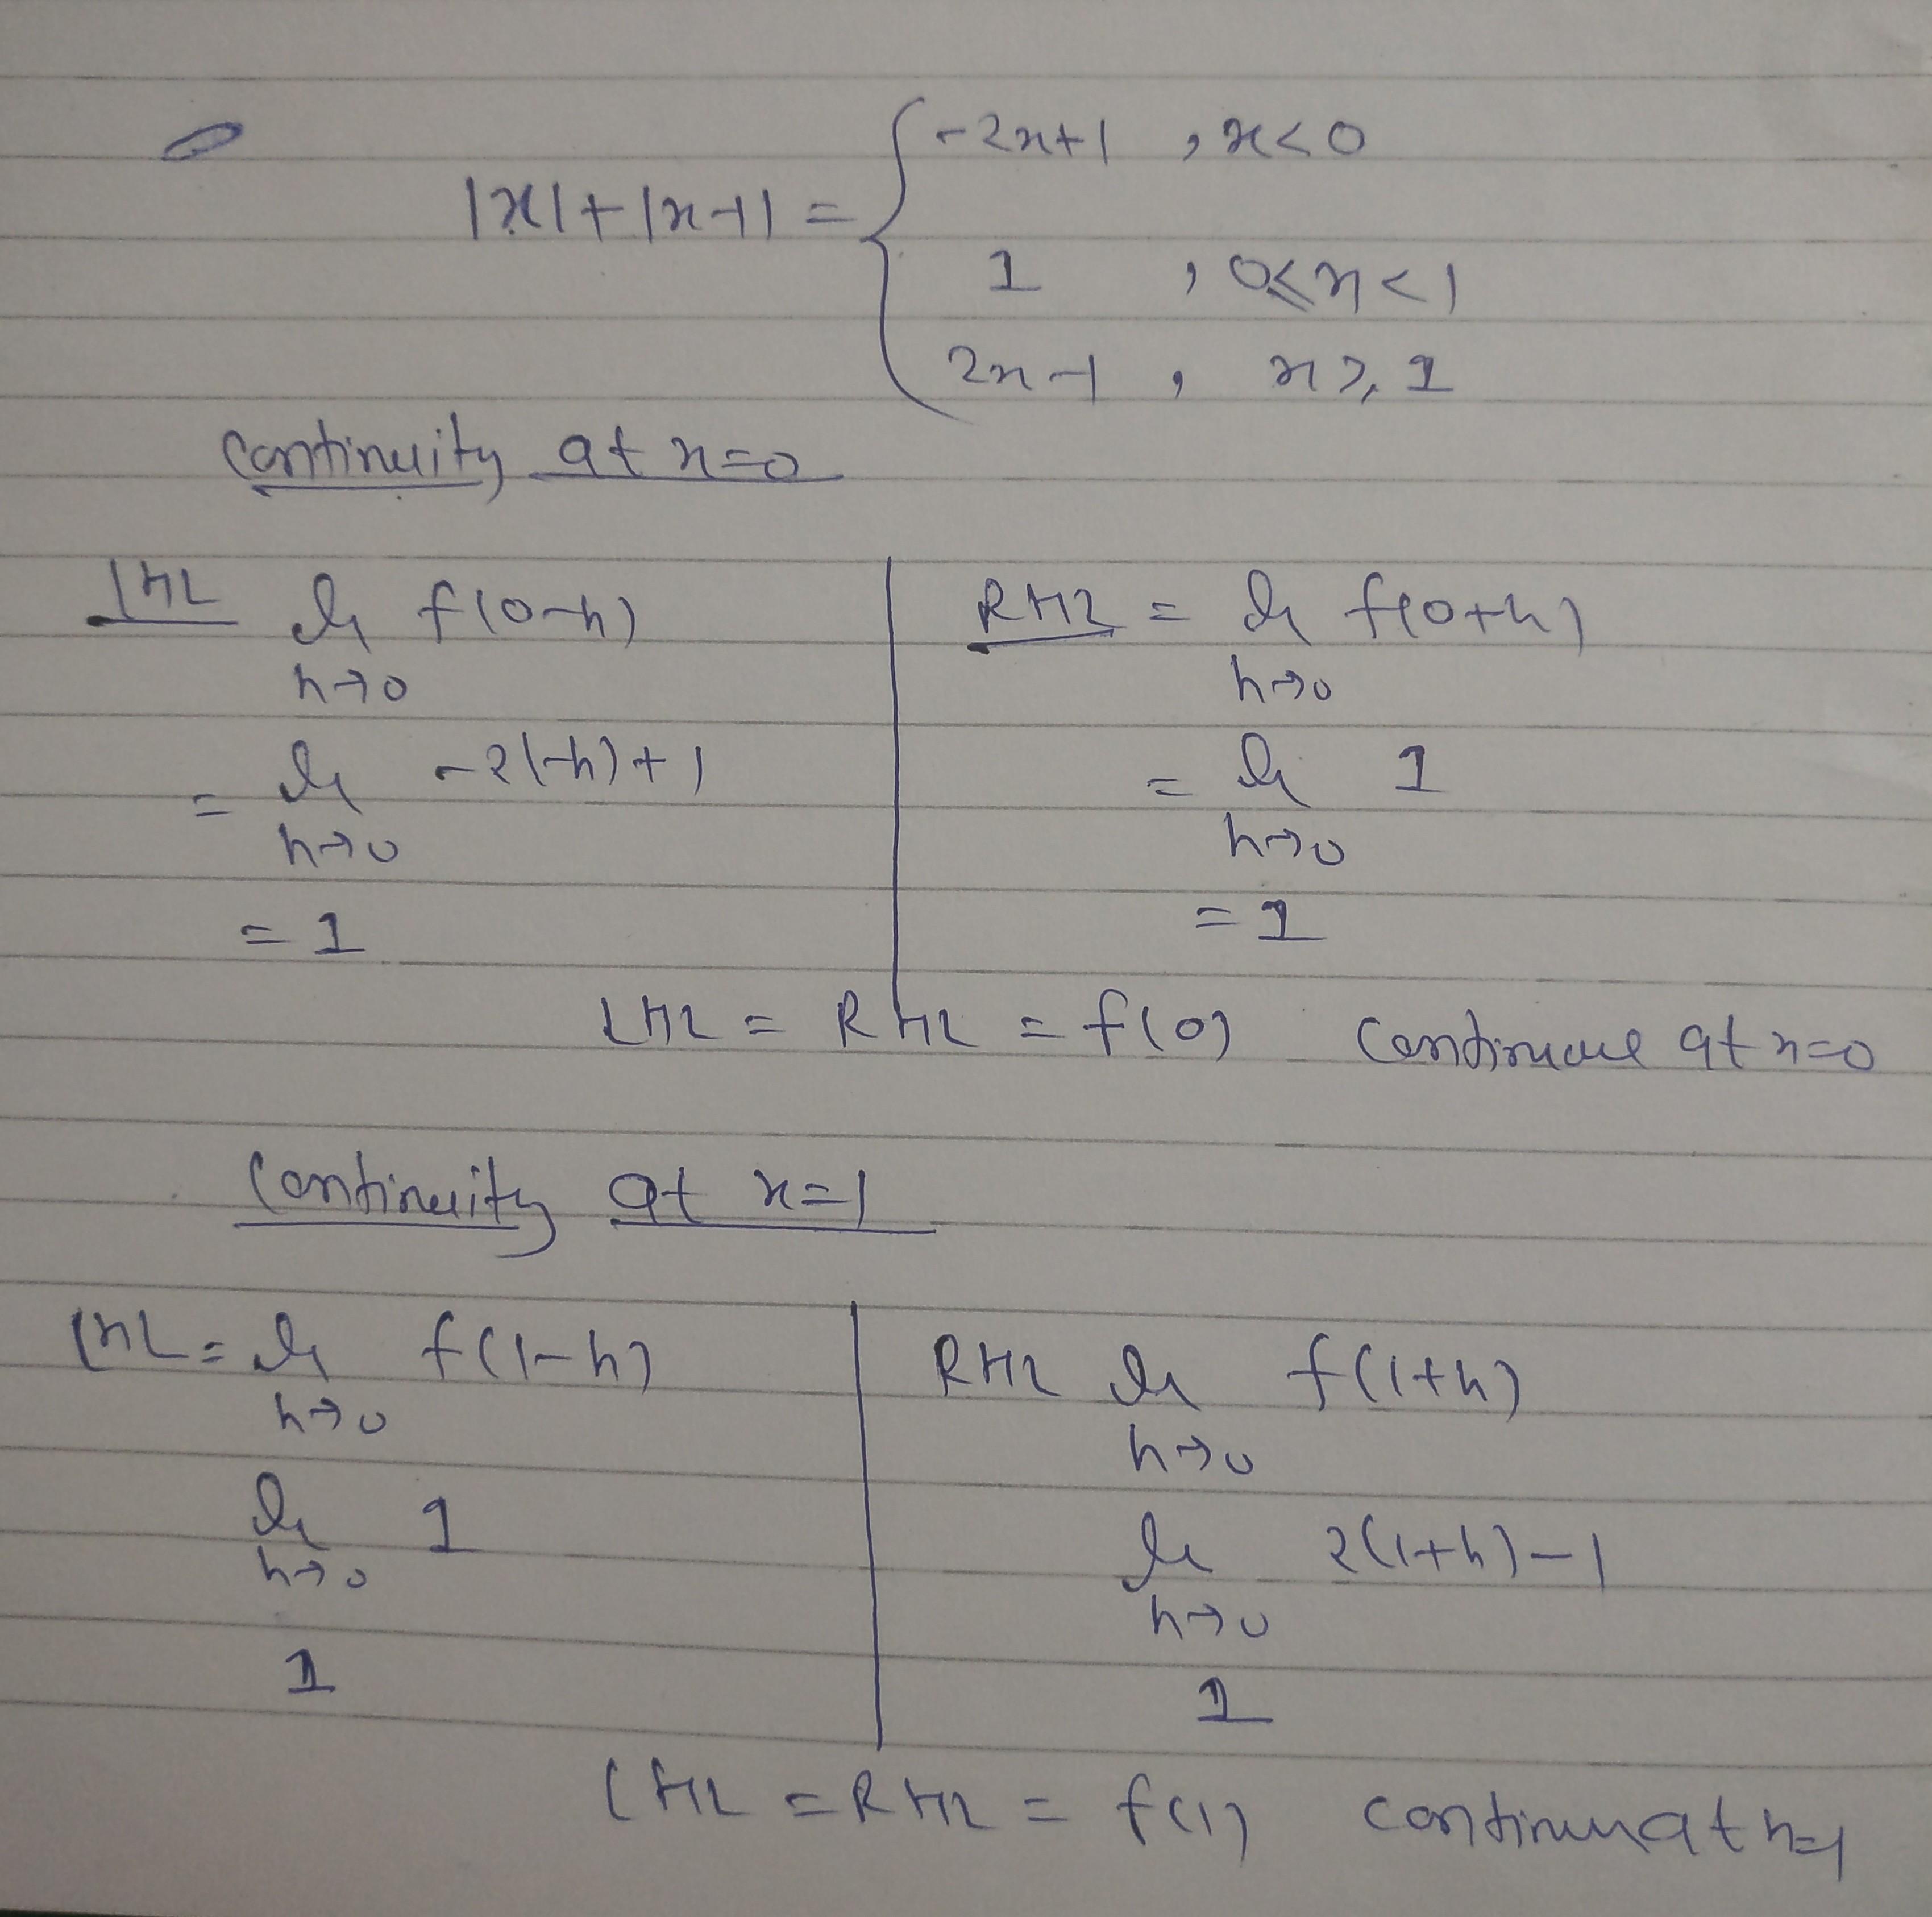 |x|+|x-1| = { -2x+1 , x<0
1 , 0≤x<1
2x-1 , x≥1
Continuity at x=0
LHL lim f(0-h)
h→0
= lim -2(-h)+1
h→0
= 1
RHL = lim f(0+h)
h→0
= lim 1
h→0
= 1
LHL = RHL = f(0) continuous at x=0
Continuity at x=1
LHL = lim f(1-h)
h→0
lim 1
h→0
1
RHL lim f(1+h)
h→0
lim 2(1+h)-1
h→0
1
LHL = RHL = f(1) continuous at x=1